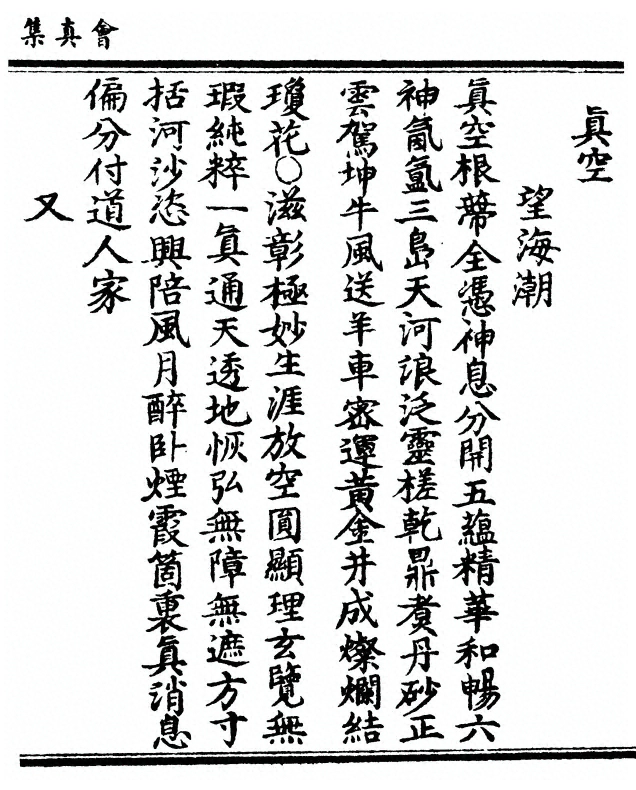 會真集
眞空
望海潮
眞空根蔕全憑神息分開五蘊精華和暢六
神氤氳三島天河浪泛靈槎乾鼎煑丹砂正
雲駕坤牛風送羊車密運黃金井成燦爛結
瓊花○滋彰極妙生涯放空圓顯理玄覽無
瑕純粹一眞通天透地恢弘無障無遮方寸
括河沙恣興陪風月醉卧煙霞箇裏眞消息
偏分付道人家
又